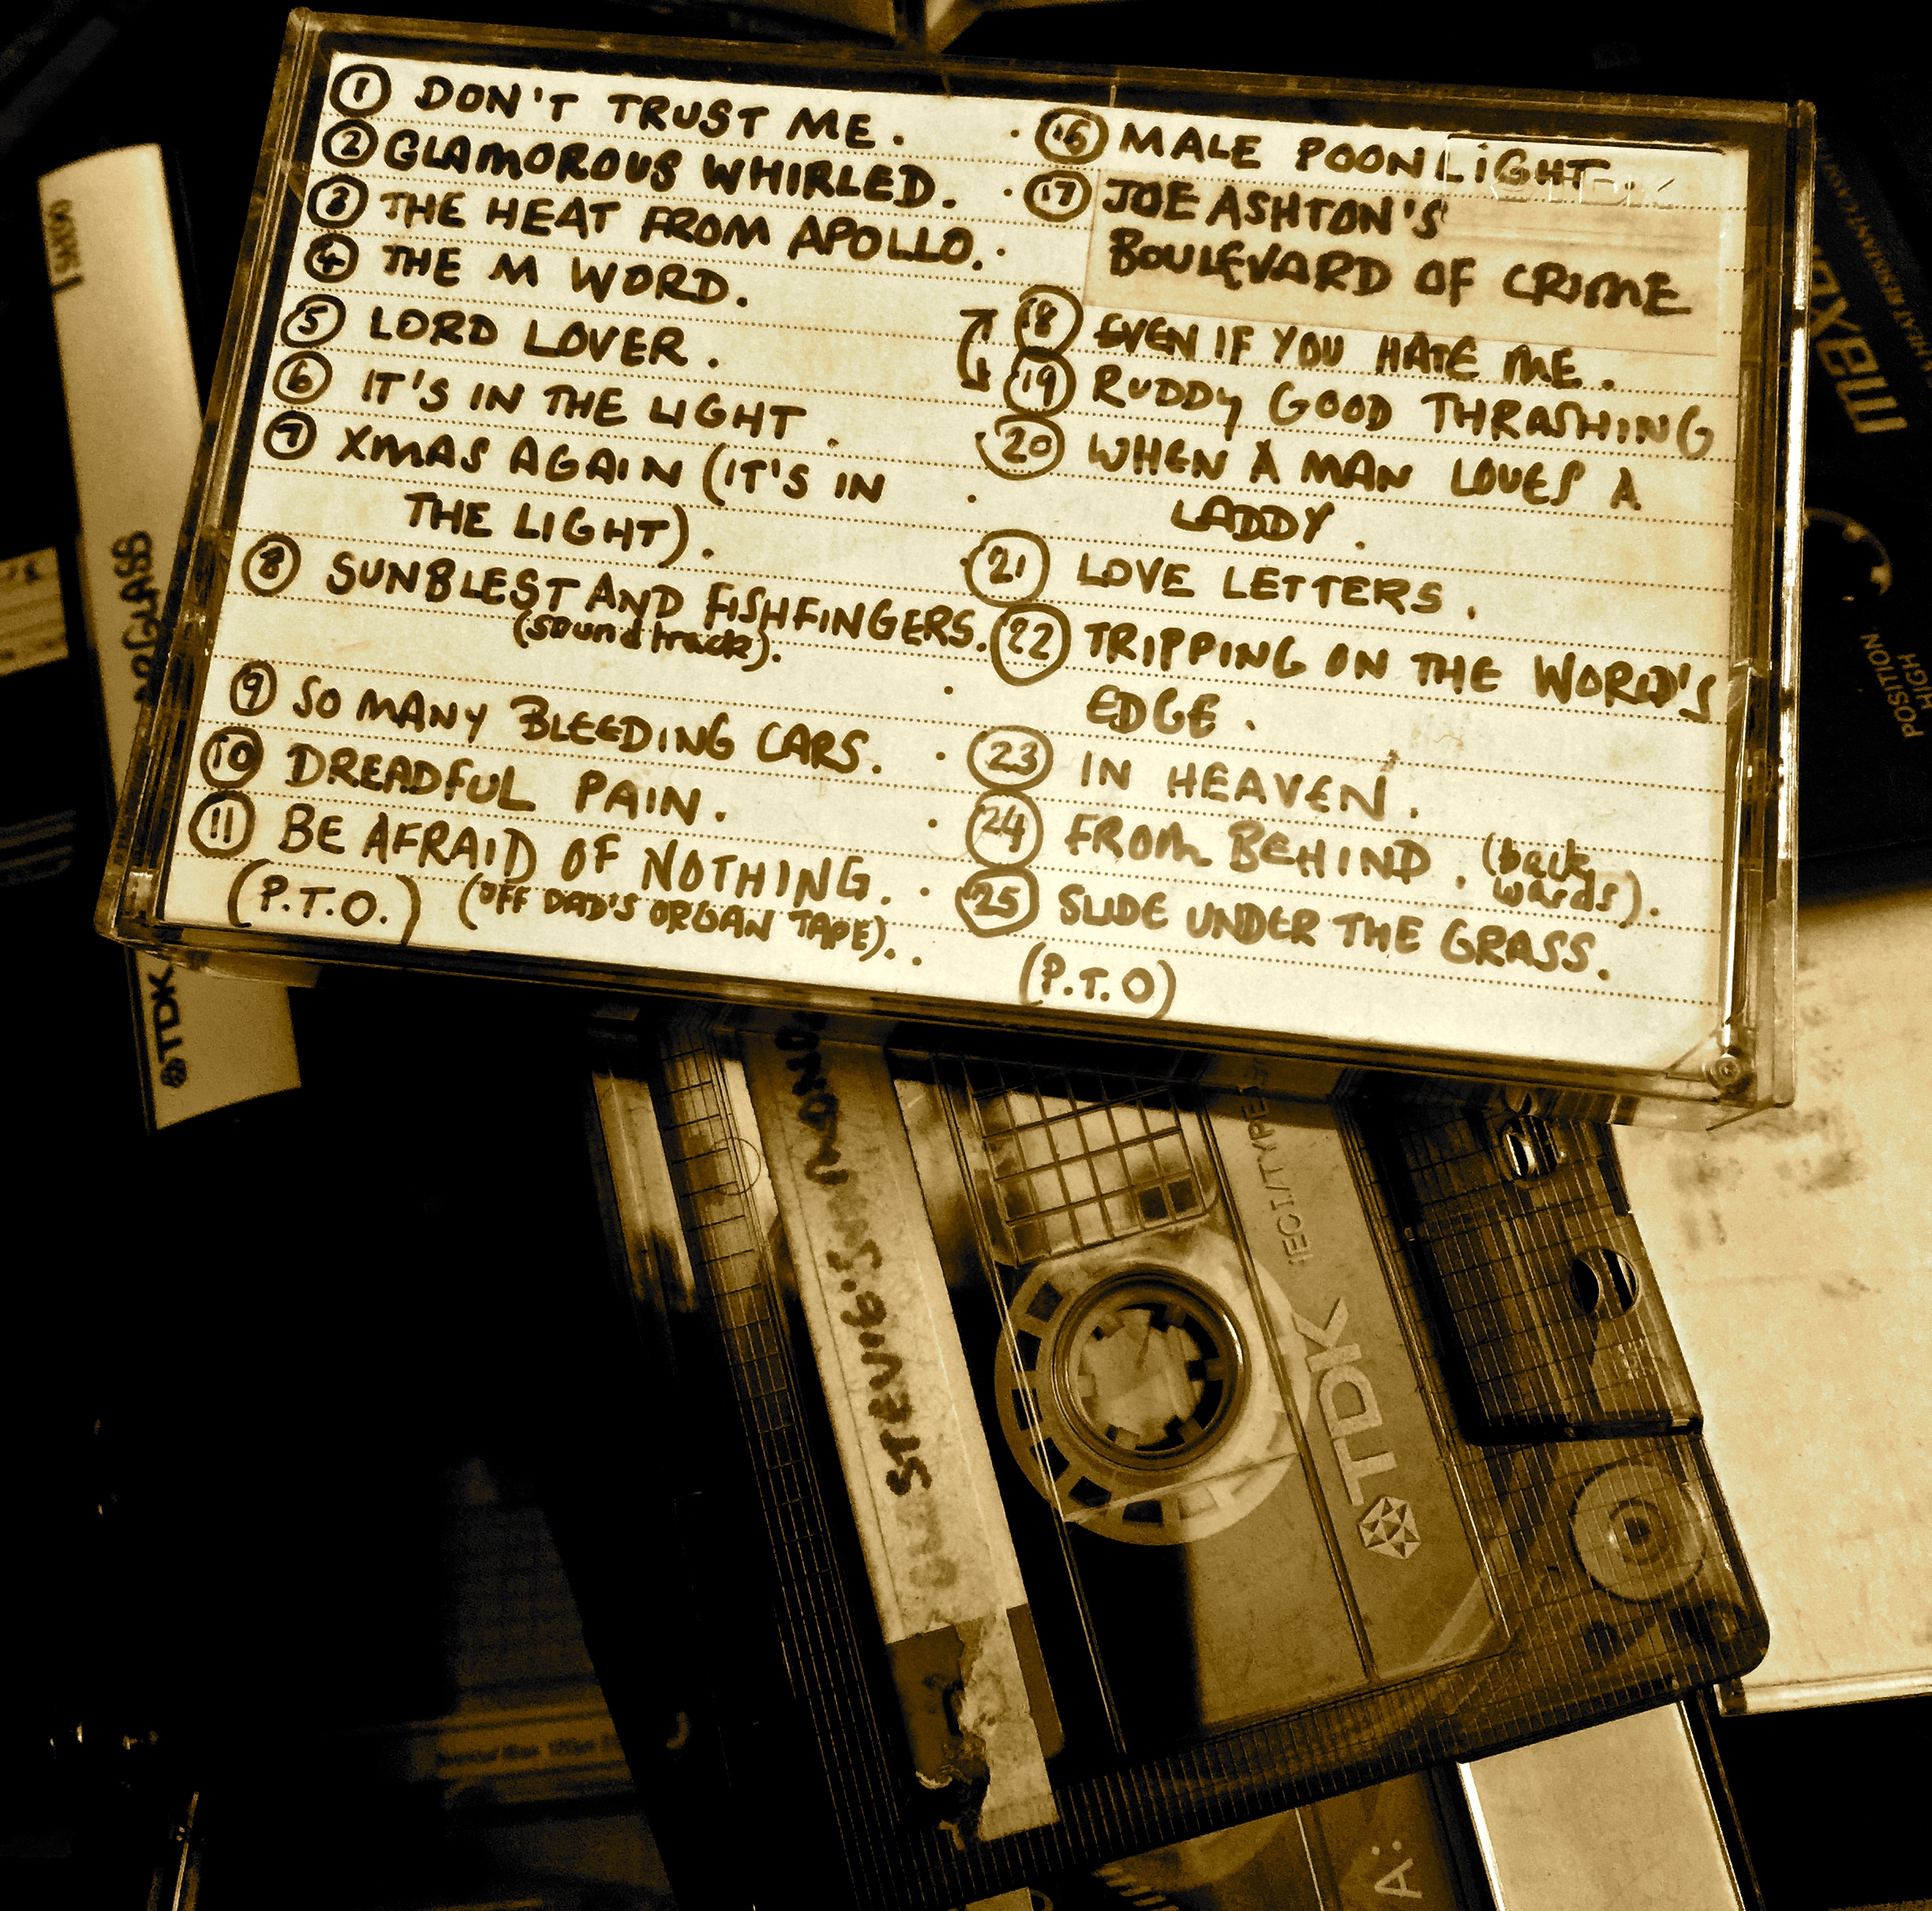 ① DON'T TRUST ME.
② GLAMOROUS WHIRLED.
③ THE HEAT FROM APOLLO.
④ THE M WORD.
⑤ LORD LOVER.
⑥ IT'S IN THE LIGHT.
⑦ XMAS AGAIN (IT'S IN
THE LIGHT).
⑧ SUNBLEST AND FISHFINGERS.
(soundtrack).
⑨ SO MANY BLEEDING CARS.
⑩ DREADFUL PAIN.
⑪ BE AFRAID OF NOTHING.
(P.T.O.) (OFF DAD'S ORGAN TAPE).
⑯ MALE POONLIGHT.
⑰ JOE ASHTON'S
BOULEVARD OF CRIME
⑱ EVEN IF YOU HATE ME.
⑲ RUDDY GOOD THRASHING
⑳ WHEN A MAN LOVES A
LADDY.
㉑ LOVE LETTERS.
㉒ TRIPPING ON THE WORLD'S
EDGE.
㉓ IN HEAVEN.
㉔ FROM BEHIND. (back
wards).
㉕ SLIDE UNDER THE GRASS.
(P.T.O)
TDK
SA90
TDK
maxell
POSITION
HIGH
STEVIE'S
IECI/TYPE
TDK
A: